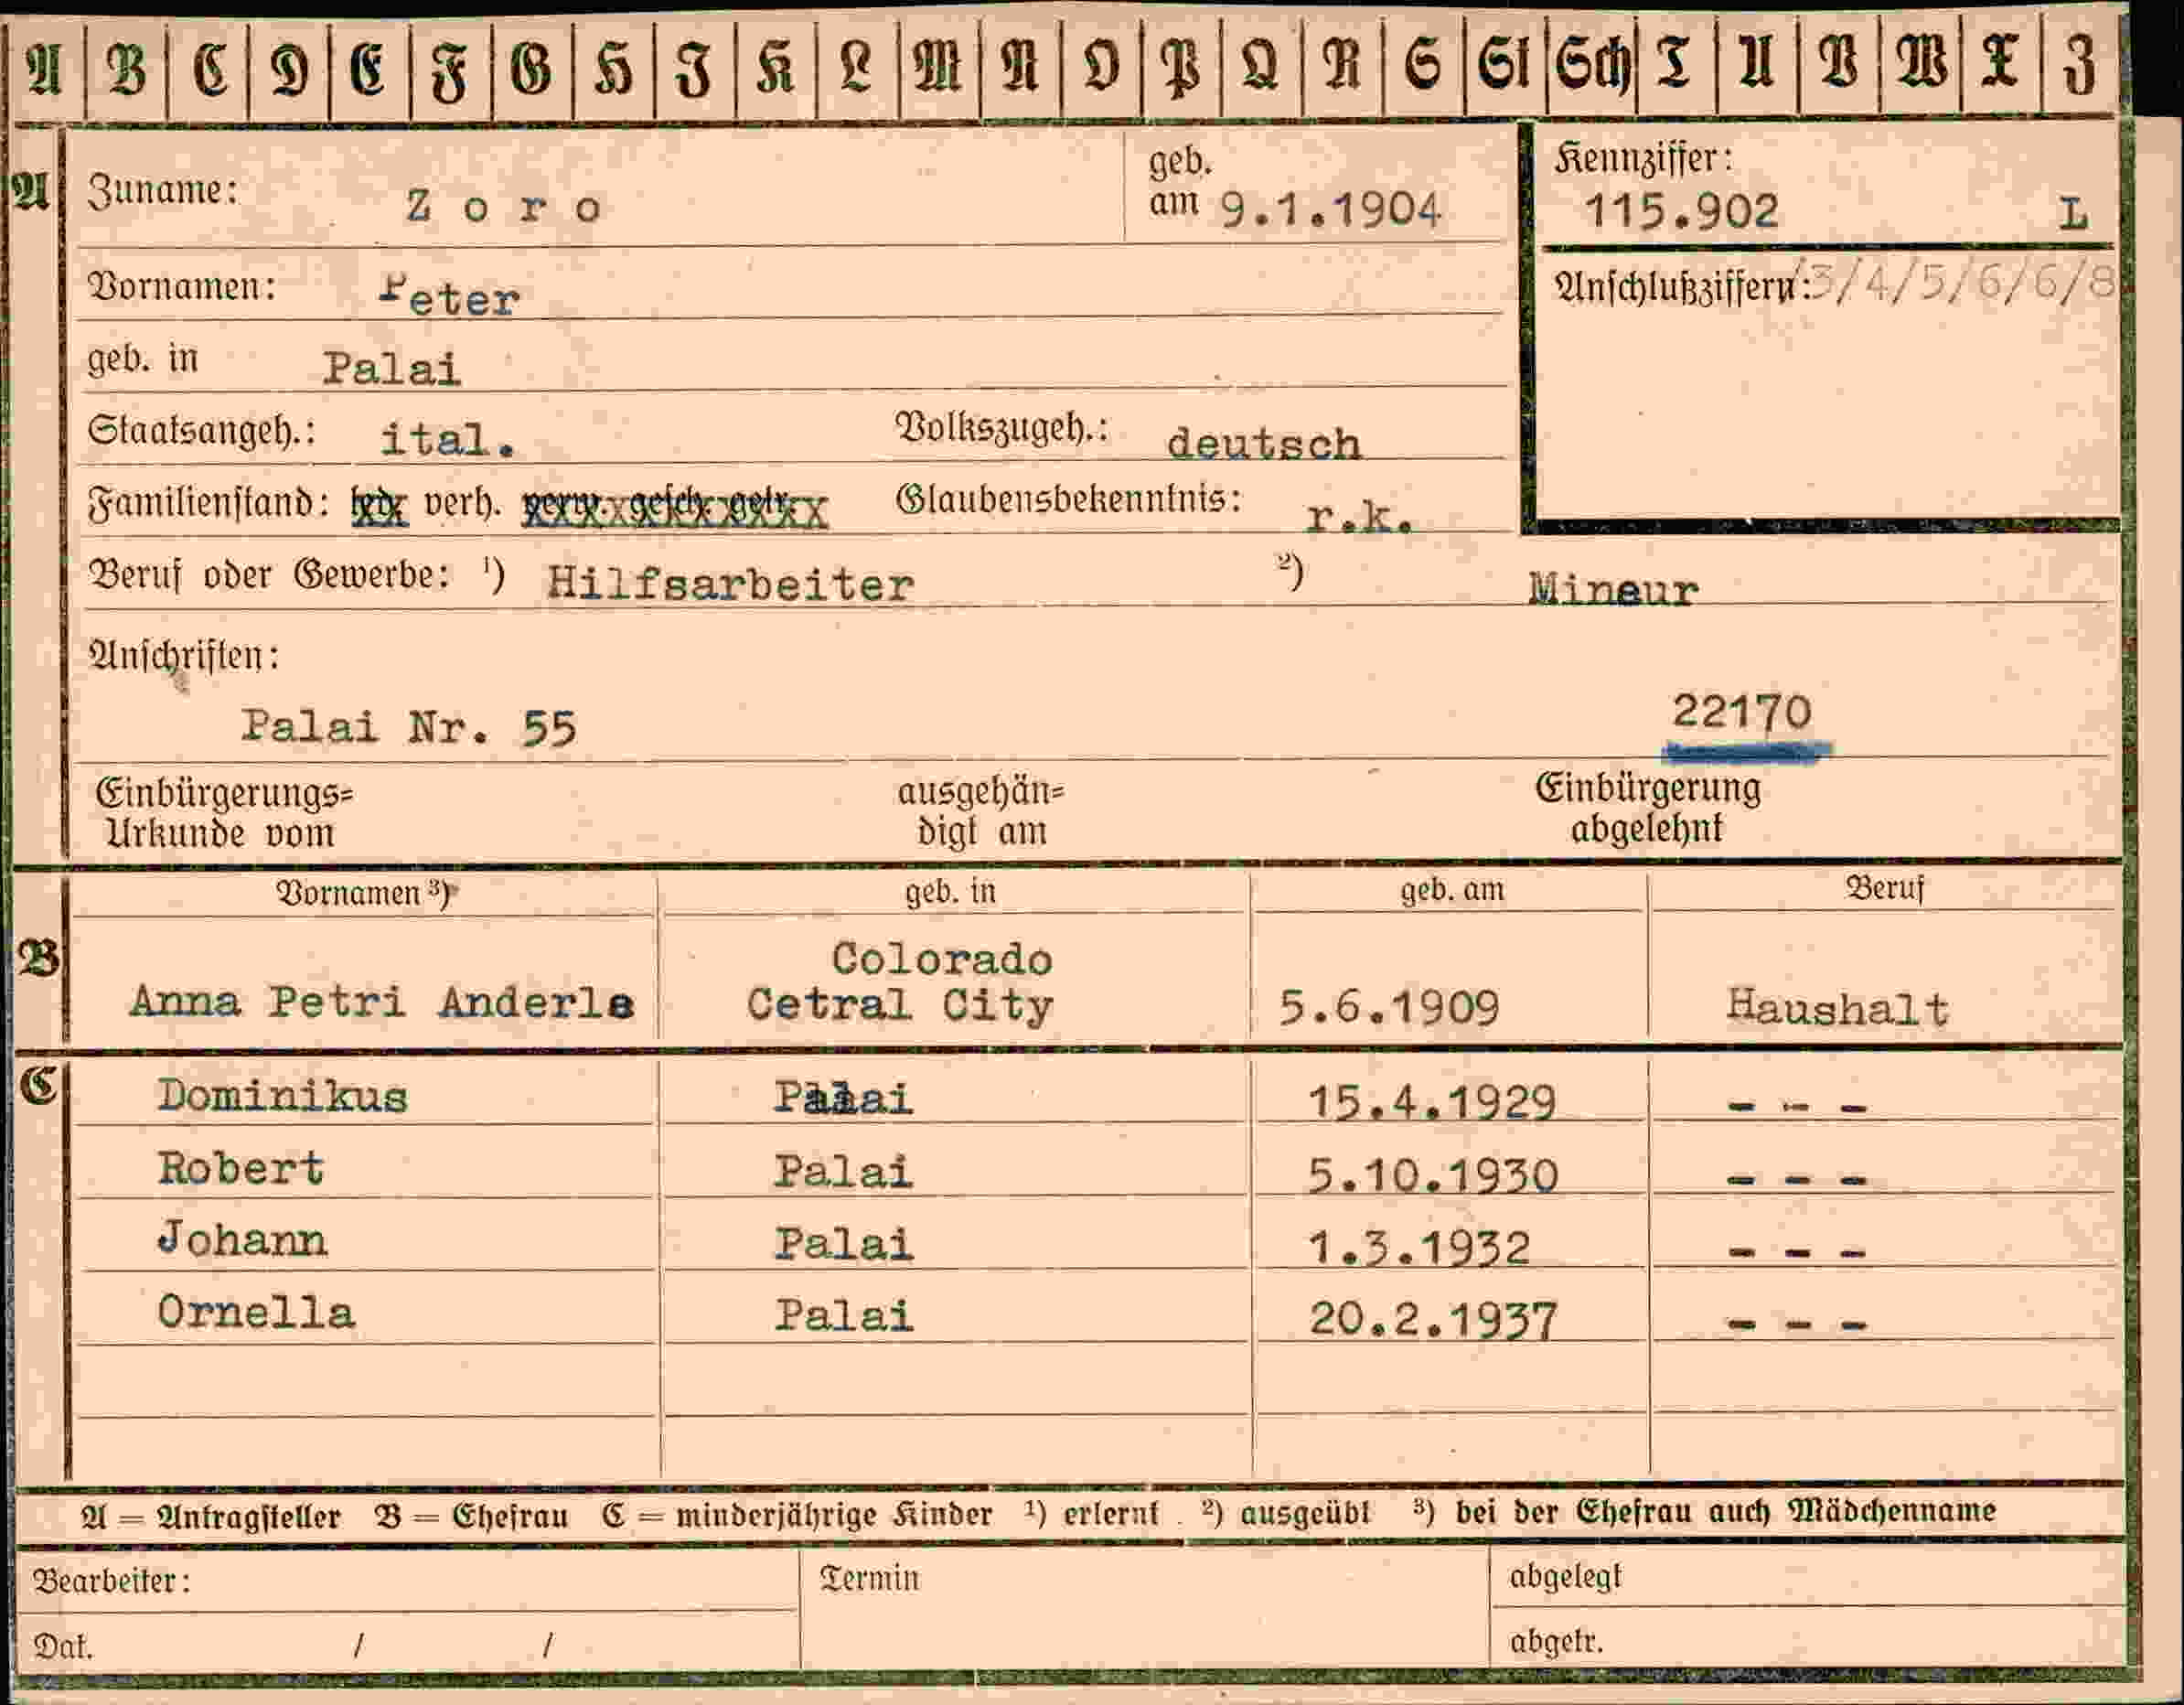 A B C D E F G H I K L M N O P Q R S St Sch T U V W X Z
A Zuname: Zoro geb. am 9.1.1904
Kennziffer: 115.902 L
Anschlußziffern: /3/4/5/6/6/8
Vornamen: Peter
geb. in Palai
Staatsangeh.: ital. Volkszugeh.: deutsch
Familienstand: led. verh. verw. gesch. getr. Glaubensbekenntnis: r.k.
Beruf oder Gewerbe: ¹) Hilfsarbeiter ²) Mineur
Anschriften:
Palai Nr. 55 22170
Einbürgerungs= ausgehän= Einbürgerung
Urkunde vom digt am abgelehnt
Vornamen ³) geb. in geb. am Beruf
B Colorado
Anna Petri Anderle Cetral City 5.6.1909 Haushalt
C Dominikus Palai 15.4.1929 - - -
Robert Palai 5.10.1930 - - -
Johann Palai 1.3.1932 - - -
Ornella Palai 20.2.1937 - - -
A = Antragsteller B = Ehefrau C = minderjährige Kinder ¹) erlernt ²) ausgeübt ³) bei der Ehefrau auch Mädchenname
Bearbeiter: Termin abgelegt
Dat. / / abgetr.